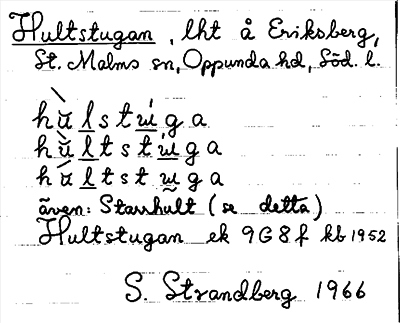 Hultstugan, lht å Eriksberg,
St. Malms sn, Oppunda hd, Söd. l.
hu̇̀lstɯ́ga
hu̇̀ltstɯ́ga
hu̇́ltstɯga
även: Starrhult (se detta)
Hultstugan ek 9G8f kb 1952
S. Strandberg 1966